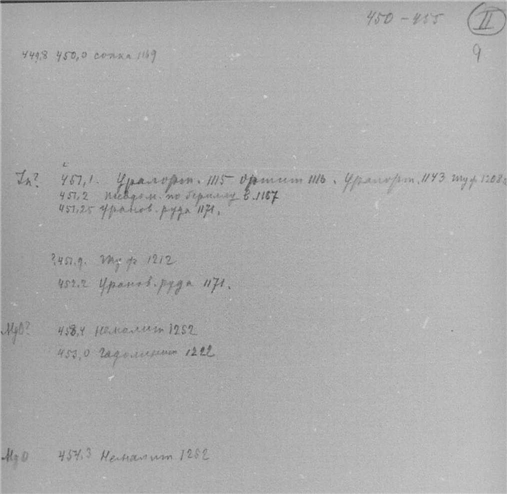 450 - 455 II
9
449,8 450,0 сопка 1169
In? 451,1 Уралорт. 1115 Ортит 1116. Уралорт. 1143 туф 1208
451,2 по бериллу 1167
451,25 Уранов. руда 1171.
? 451,9. туф 1212
452,2 Уранов. руда 1171.
MgO? 453,4 Немалит 1252
453,0 Гадолинит 1222
MgO 454,3 Немалит 1252